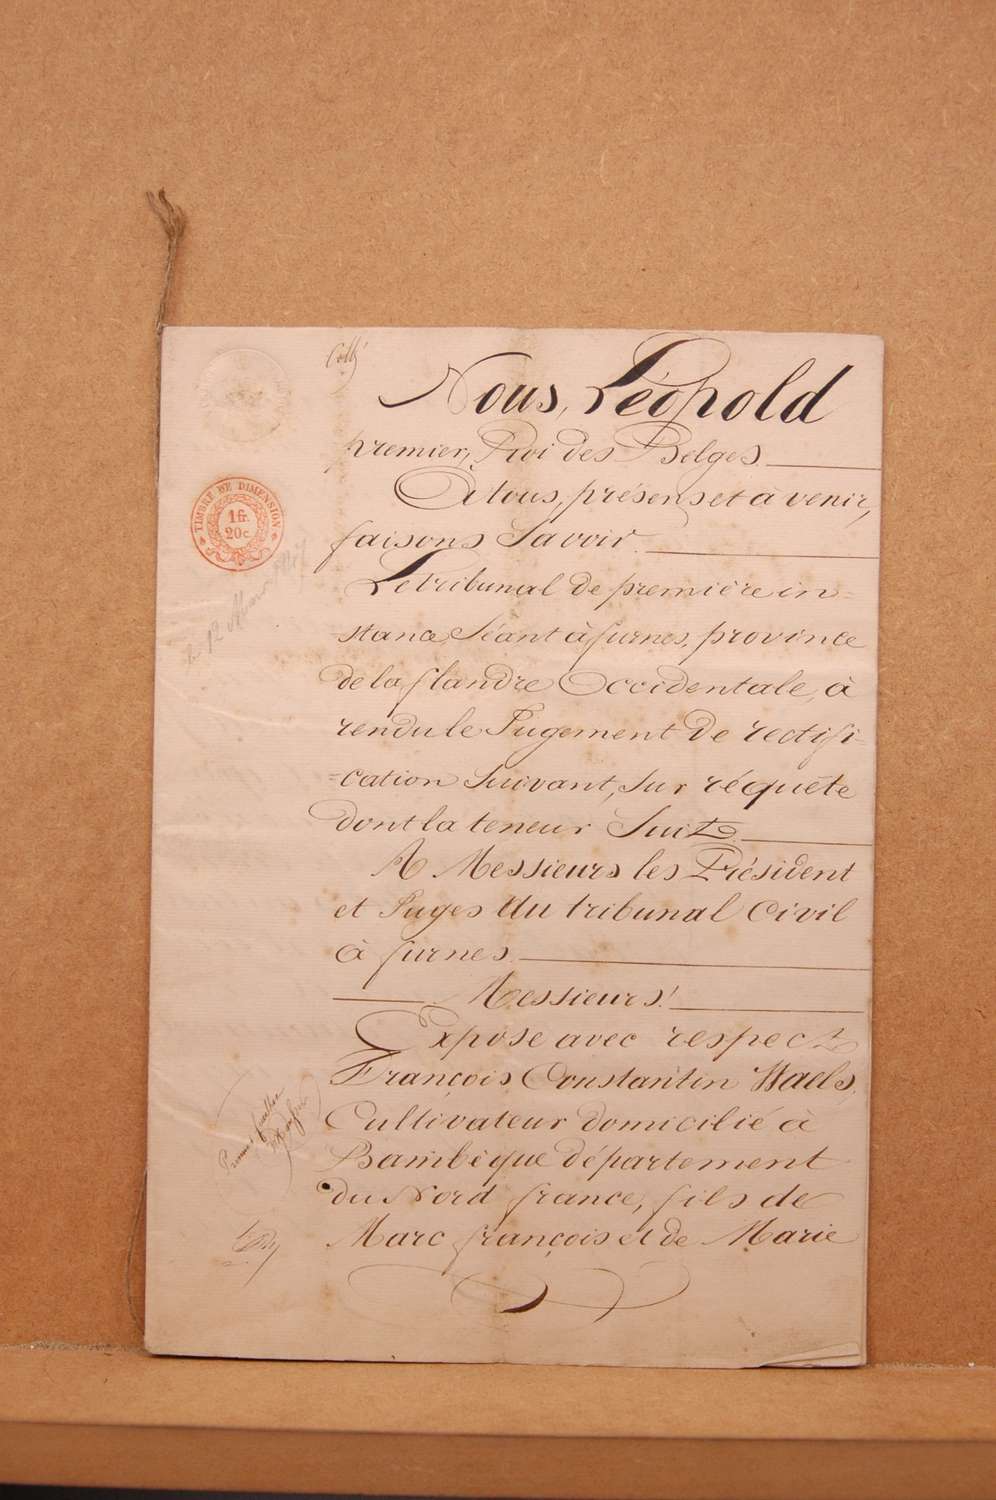 Nous, Léopold
premier, Roi des Belges
A tous, présens et à venir,
faisons Savoir.
Le tribunal de première in=
stance Séant à furnes, province
de la flandre Occidentale, à
rendu le Jugement de rectifi=
=cation Suivant, sur réquête
dont la teneur Suit
A Messieurs les Président
et Juges du tribunal Civil
à furnes.
Messieurs!
Expose avec respect
François Constantin Waels,
Cultivateur domicilié à
Bambèque département
du Nord france, fils de
Marc françois et de Marie
TIMBRE DE DIMENSION
1 fr.
20 c.
le 12
Premier feuillet